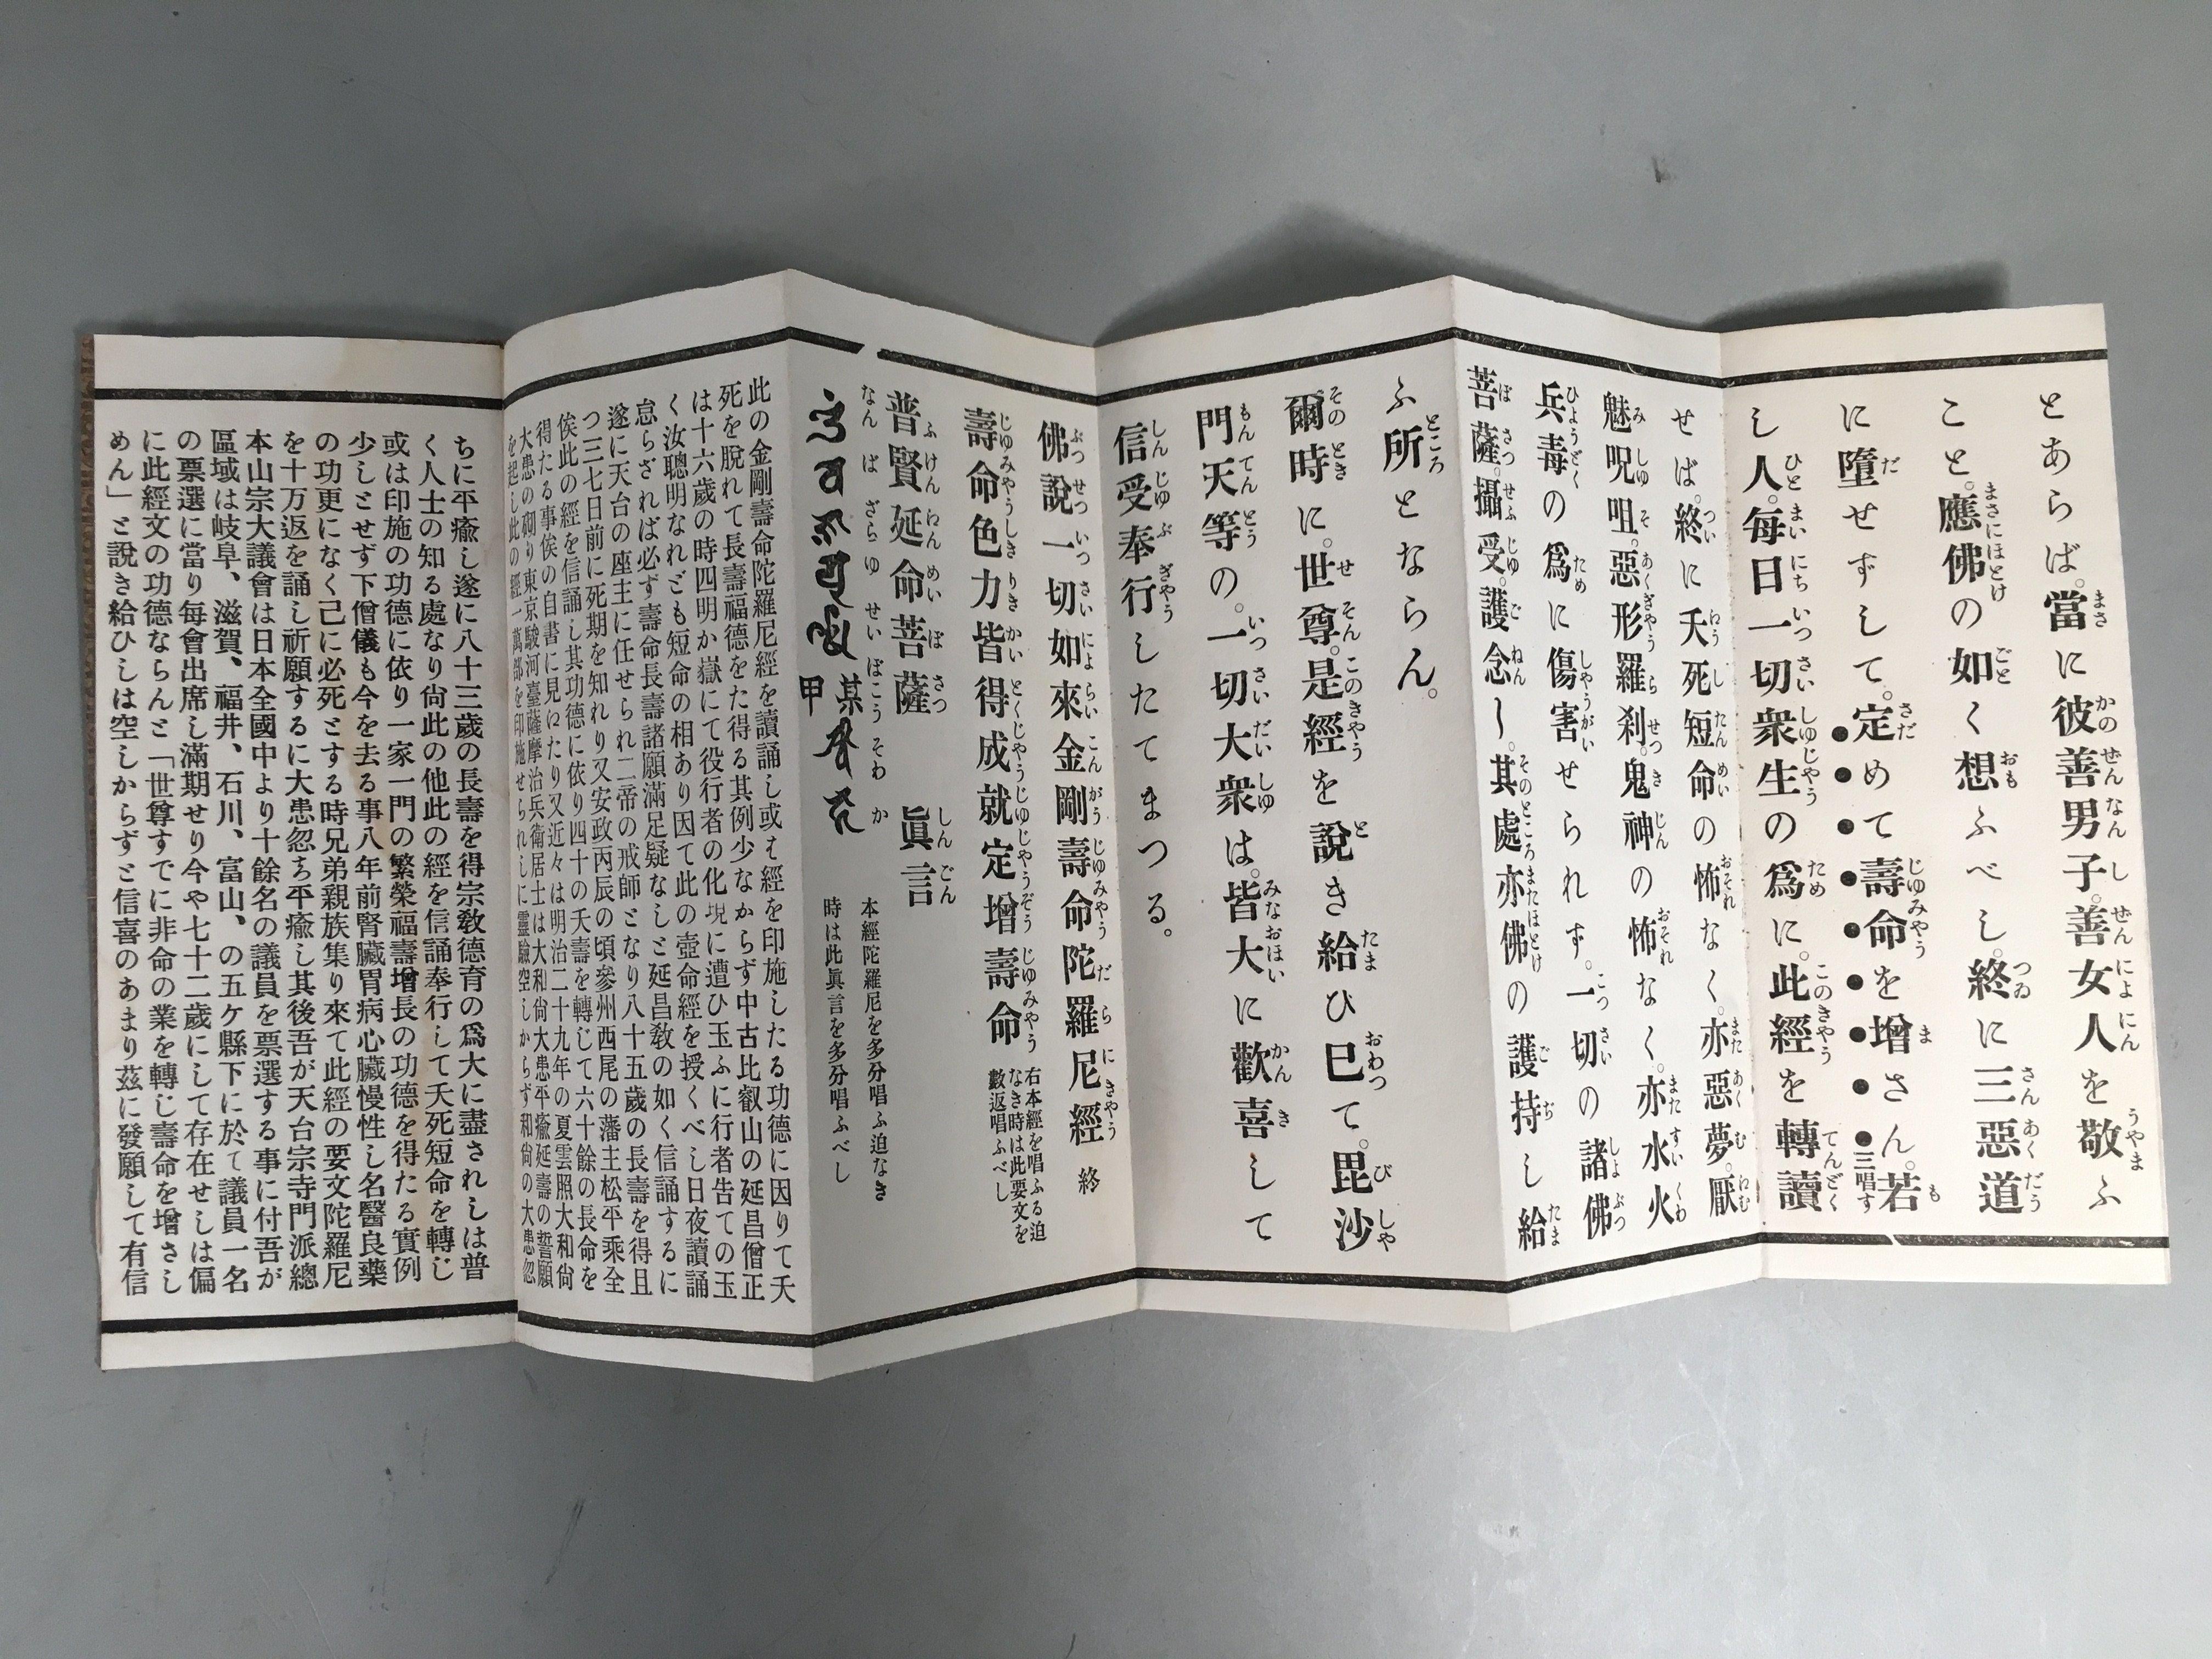 とあらば。當に彼善男子。善女人を敬ふ
こと。應佛の如く想ふべし。終に三惡道
に墮せずして。定めて壽命を增さん。若
三唱す
し人。每日一切衆生の爲に。此經を轉讀
せば。終に夭死短命の怖なく。亦惡夢。厭
魅呪咀。惡形羅刹。鬼神の怖なく。亦水火
兵毒の爲に傷害せられず。一切の諸佛
菩薩。攝受。護念し。其處亦佛の護持し給
ふ所とならん。
爾時に。世尊。是經を說き給ひ已て。毘沙
門天等の。一切大衆は。皆大に歡喜して
信受奉行したてまつる。
佛說一切如來金剛壽命陀羅尼經 終
壽命色力皆得成就定增壽命
右本經を唱ふる迫
なき時は此要文を
數返唱ふべし
普賢延命菩薩 眞言
本經陀羅尼を多分唱ふ迫なき
時は此眞言を多分唱ふべし
なん ば ざらゆ せい ぼこう そわ か
某甲
此の金剛壽命陀羅尼經を讀誦し或は經を印施したる功德に因りて夭
死を脫れて長壽福德をた得る其例少なからず中古比叡山の延昌僧正
は十六歲の時四明か嶽にて役行者の化現に遭ひ玉ふに行者告ての玉
く汝聰明なれども短命の相あり因て此の壺命經を授くべし日夜讀誦
怠らざれば必ず壽命長壽諸願滿足疑なしと延昌敎の如く信誦するに
遂に天台の座主に任せられ二帝の戒師となり八十五歲の長壽を得且
つ三七日前に死期を知れり又安政丙辰の頃參州西尾の藩主松平乘全
俟此の經を信誦し其功德に依り四十の夭壽を轉じて六十餘の長命を
得たる事俟の自書に見ひたり又近々は明治二十九年の夏雲照大和尙
大患の砌り東京駿河臺薩摩治兵衛居士は大和尙大患平癒延壽の誓願
を起し此の經一萬部を印施せられしに靈驗空しからず和尙の大患忽
ちに平癒し遂に八十三歲の長壽を得宗敎德育の爲大に盡されしは普
く人士の知る處なり尙此の他此の經を信誦奉行して夭死短命を轉じ
或は印施の功德に依り一家一門の繁榮福壽增長の功德を得たる實例
少しとせず下僧儀も今を去る事八年前腎臟胃病心臟慢性し名醫良藥
の功更になく己に必死とする時兄弟親族集り來て此經の要文陀羅尼
を十万返を誦し祈願するに大患忽ち平癒し其後吾が天台宗寺門派總
本山宗大議會は日本全國中より十餘名の議員を票選する事に付吾が
區域は岐阜、滋賀、福井、石川、富山、の五ケ縣下に於て議員一名
の票選に當り每會出席し滿期せり今や七十二歲にして存在せしは偏
に此經文の功德ならんと「世尊すでに非命の業を轉じ壽命を增さし
めん」と說き給ひしは空しからずと信喜のあまり茲に發願して有信